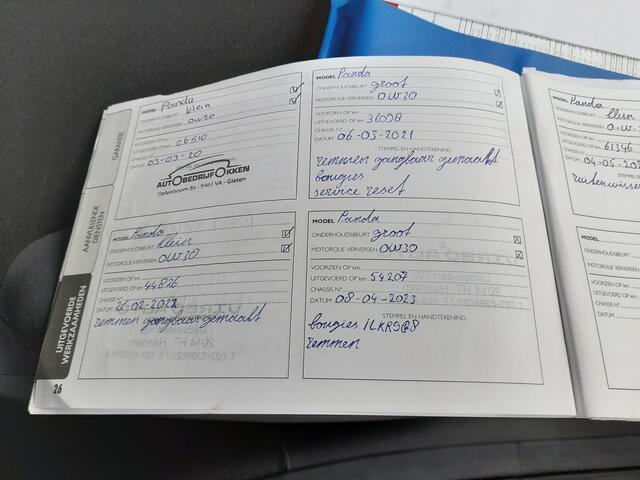 GARANTIE
AANVULLENDE
DIENSTEN
UITGEVOERDE
WERKZAAMHEDEN
26
MODEL Panda
ONDERHOUDSBEURT klein
MOTOROLIE VERVERSEN 0W30
VOORZIEN OP km
UITGEVOERD OP km 26510
CHASSIS N°
DATUM 03-03-20
AUTOBEDRIJF OKKEN
Oelenboom 8a - 9461 VA - Gieten
MODEL Panda
ONDERHOUDSBEURT groot
MOTOROLIE VERVERSEN 0W30
VOORZIEN OP km
UITGEVOERD OP km 36098
CHASSIS N°
DATUM 06-03-2021
STEMPEL EN HANDTEKENING
remmen gangbaar gemaakt
bougies
service reset
MODEL Panda
ONDERHOUDSBEURT klein
MOTOROLIE VERVERSEN 0W30
VOORZIEN OP km
UITGEVOERD OP km 44826
CHASSIS N°
DATUM 26-02-2022
remmen gangbaar gemaakt
MODEL Panda
ONDERHOUDSBEURT groot
MOTOROLIE VERVERSEN 0W30
VOORZIEN OP km
UITGEVOERD OP km 54207
CHASSIS N°
DATUM 08-04-2023
STEMPEL EN HANDTEKENING
bougies ILKR9G8
remmen
MODEL Panda
ONDERHOUDSBEURT klein
MOTOROLIE VERVERSEN
VOORZIEN OP km
UITGEVOERD OP km 61346
CHASSIS N°
DATUM 04-05-
ruitenwisse
MODEL
ONDERHOUDSBEURT
MOTOROLIE VERVERSEN
VOORZIEN OP km
UITGEVOERD OP km
CHASSIS N°
DATUM